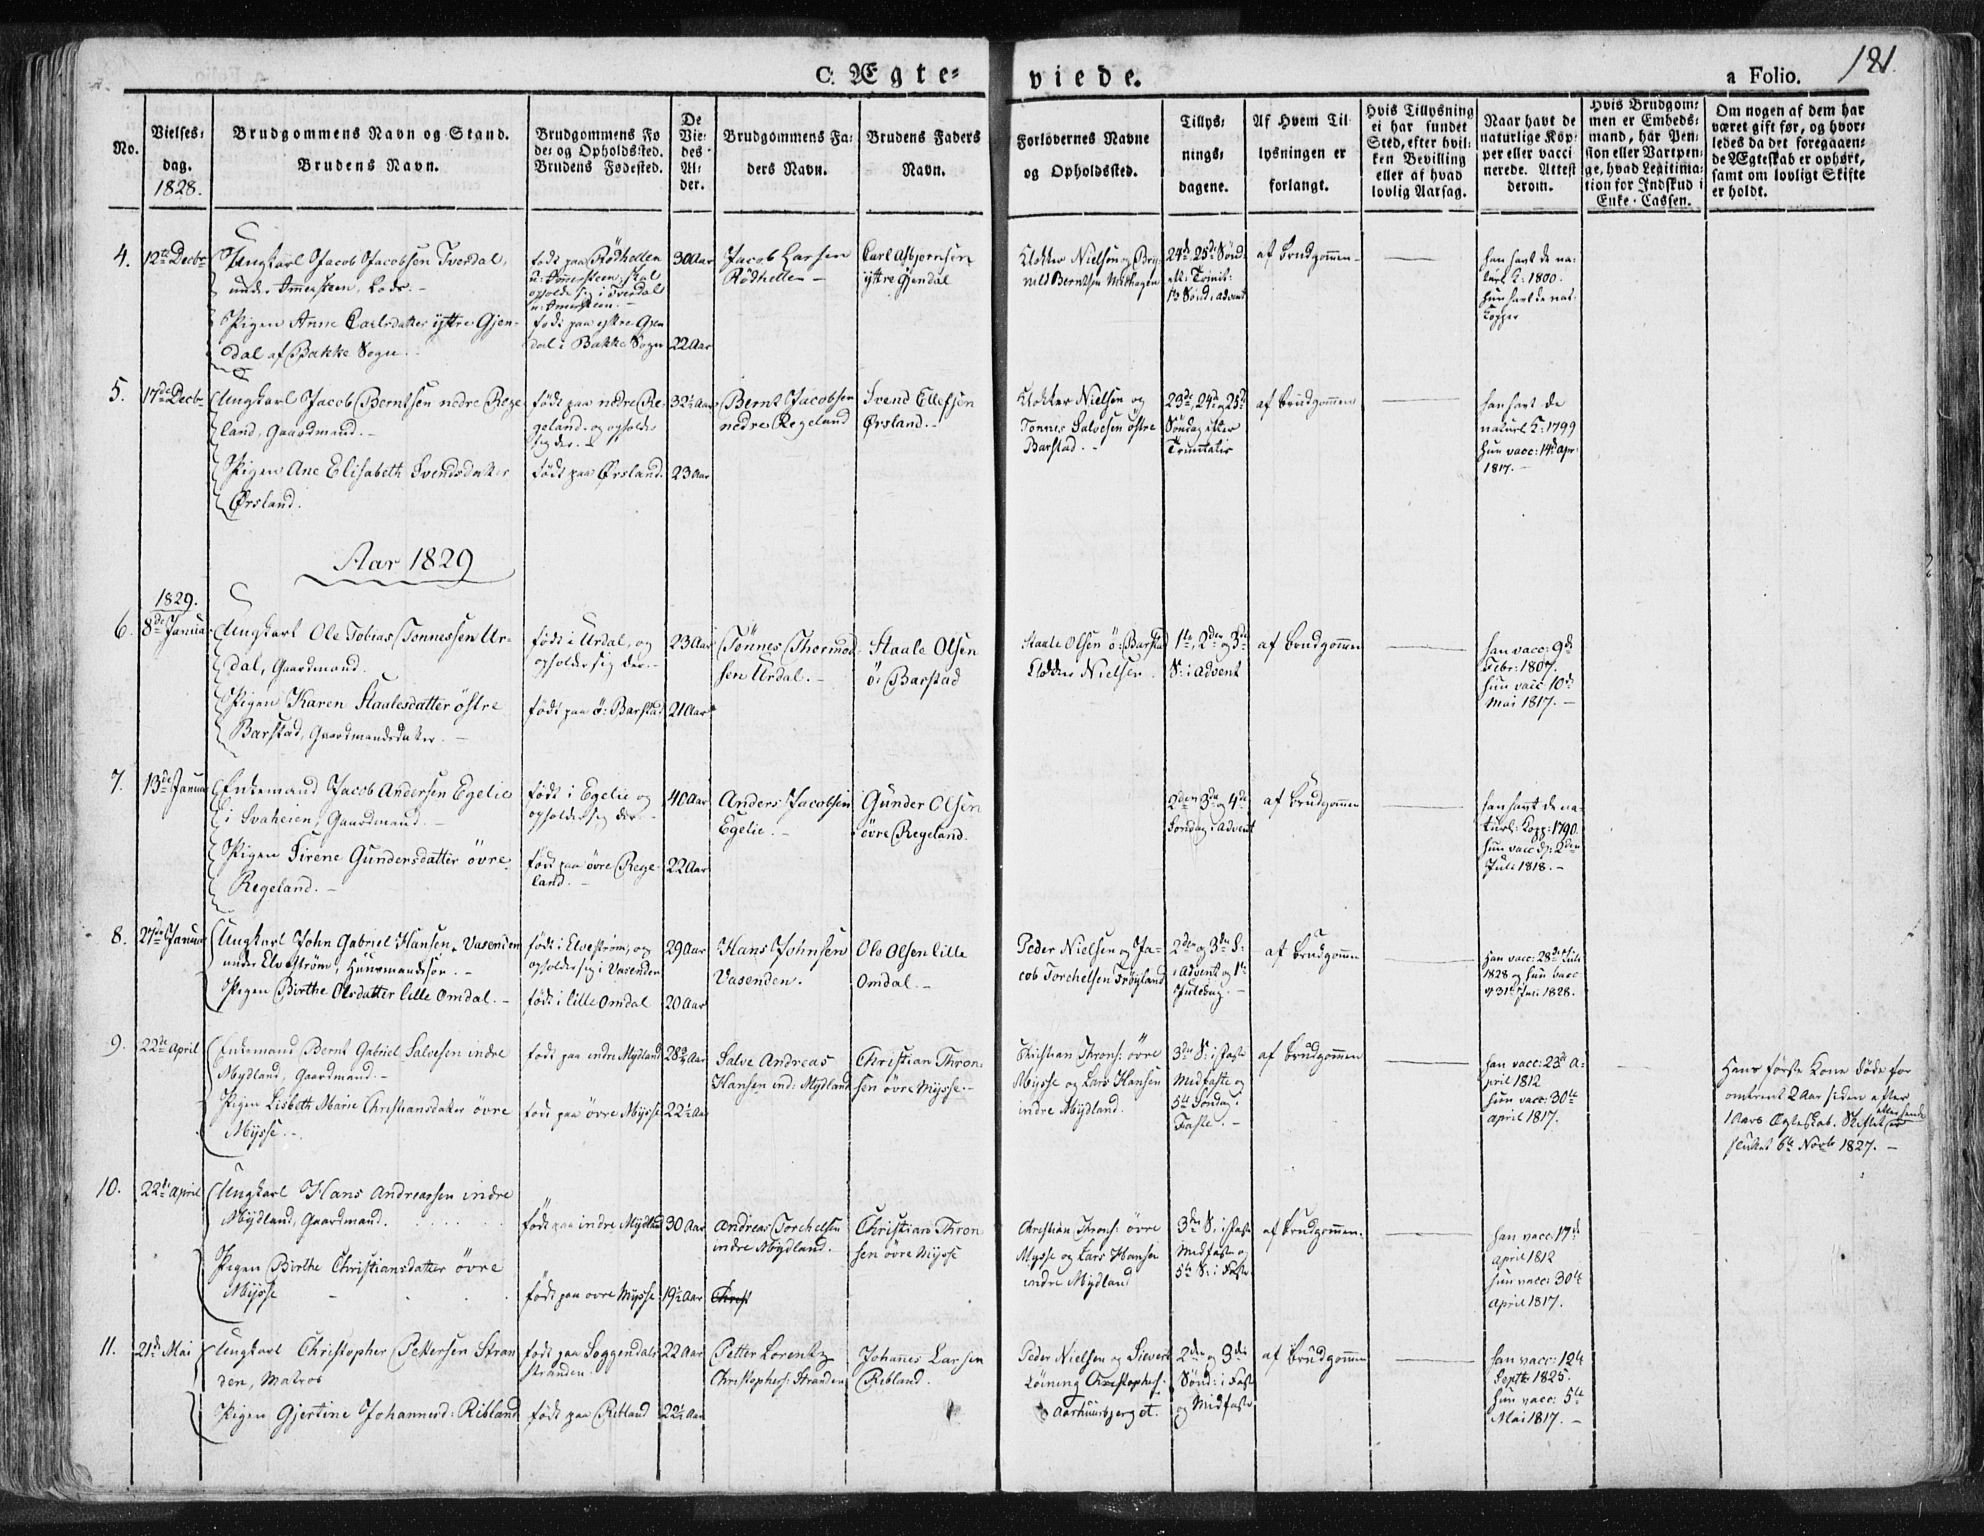 C. Ægte-
viede.
a Folio.
181.
No.
Vielses-
dag.
1828.
Brudgommens Navn og Stand.
Brudens Navn.
Brudgommens Fø
de- og Opholdssted.
Brudens Fødested.
De
Vie-
des
Al-
der.
Brudgommens Fa-
ders Navn.
Brudens Faders
Navn.
Forlovernes Navne
og Opholdssted.
Tillys-
nings-
dagene.
Af Hvem Til-
lysningen er
forlangt.
Hvis Tillysning
ei har fundet
Sted, efter hvil-
ken Bevilling
eller af hvad
lovlig Aarsag.
Naar havt de
naturlige Kop-
per eller vacci
nerede. Attest
derom.
Hvis Brudgom-
men er Embeds-
mand, har Pen-
sion eller Vartpen-
ge, hvad Legitima-
tion for Indskud i
Enke-Cassen.
Om nogen af dem har
været gift før, og hvor-
ledes da det foregaaen-
de Ægteskab er ophørt,
samt om lovligt Skifte
er holdt.
4.
12te Decbr
Ungkarl Jacob Jacobsen Tverdal,
under Ammersteen, Lods.
Pigen Anne Carlsdatter yttre Gjen-
dal af Bakke Sogn.
født paa Rødhellen
u: Ammersteen, skal
opholde sig i Tverdal
u: Amersteen.
født paa yttre Gjen
dal i Bakke Sogn
30 Aar
22 Aar
Jacob Larsen
Rødhellen
Carl Asbjørnsen
yttre Gjendal
Klokker Nielsen og
Berntsen Midhagen
24de, 25de Sønd
e: Trinit:
1te Sønd: i Advent
af Brudgommen
han havt de na-
turl: K: 1800.
hun havt de nat.
Kopper
5.
17de Decbr
Ungkarl Jacob Berntsen nedre Rege-
land, Gaardmand.
Pigen Ane Elisabeth Svendsdatter
Ørsland.
født paa nedre Re-
geland, og opholder
sig der.
født paa Ørsland.
32½ Aar
23 Aar
Bernt Jacobsen
nedre Regeland
Svend Ellefsen
Ørsland.
Klokker Nielsen og
Tønnes Salvesen østre
Barstad.
23de, 24de og 25de
Søndag efter
Trinitatis
af Brudgommen
han havt de
naturl. K: 1799
hun vacc: 14de Apr:
1817.
Aar 1829
1829.
6.
8de Januar
Ungkarl Ole Tobias Tønnessen Ur-
dal, Gaardmand.
Pigen Karen Staalesdatter østre
Barstad, Gaardmandsdatter.
født i Urdal, og
opholder sig der.
født paa ø: Barstad
23 Aar
21 Aar
Tønnes Thormod-
sen Urdal.
Staale Olsen
ø: Barstad
Staale Olsen ø: Barstad
Klokker Nielsen.
1te, 2den og 3de
S: i Advent
af Brudgommen
han vacc: 9de
Febr: 1807.
hun vacc 10de
Mai 1817.
7.
13de Januar
Enkemand Jacob Andersen Egelie
i Svaheien, Gaardmand.
Pigen Sirene Gundersdatter øvre
Regeland.
født i Egelie og
opholder sig der.
født paa øvre Rege-
land.
40 Aar
22 Aar
Anders Jacobsen
Egelie.
Gunder Olsen
øvre Regeland.
2den, 3de og 4de
Søndag i Advent
af Brudgommen
han havt de na-
turl: Kopp: 1790.
hun vacc d: 2den
Juli 1818.
8.
27de Januar
Ungkarl John Gabriel Hansen Vasenden
under Elvestrøm, Huusmandssøn.
Pigen Birthe Olsdatter lille Omdal.
født i Elvestrøm, og
opholder sig i Vasenden
født i lille Omdal
29 Aar
20 Aar
Hans Johnsen
Vasenden.
Ole Olsen lille
Omdal.
Peder Nielsen og Ja-
cob Torchelsen Frøyland
2den og 3de S:
i Advent og 1te
Juledag.
af Brudgommen
han vacc: 28de Juli
1828 og hun vacc
d 31te Juni 1828.
9.
22de April
Enkemand Bernt Gabriel Salvesen indre
Mydland, Gaardmand.
Pigen Lisbeth Marie Christiansdatter øvre
Mysse.
født paa indre Mydland
født paa øvre Mysse
28 Aar
22½ Aar
Salve Andreas
Hansen ind: Mydland
Christian Thron-
sen øvre Mysse.
Christian Throns: øvre
Mysse og Lars Hansen
indre Mydland.
3de S: i Faste
Midfaste og
5te Søndag i
Faste.
af Brudgommen
han vacc: 23de A-
pril 1812
hun vacc: 30te
April 1817.
Hans første Kone døde for
omtrent 2 Aar siden efter
1 Aars Ægteskab. Skiftet efter hende
er sluttet 6te Novbr 1827.
10.
22de April
Ungkarl Hans Andreassen indre
Mydland, Gaardmand.
Pigen Birthe Christiansdatter øvre
Mysse
født paa indre Mydland
født paa øvre Mysse
30 Aar
19½ Aar
Andreas Torchelsen
indre Mydland.
Christ
Christian Thron-
sen øvre Mysse
Christian Throns: øvre
Mysse og Lars Hansen
indre Mydland
3de S: i Faste
Midfaste og
5te S: i Faste.
af Brudgommen.
han vacc: 17de
April 1812
hun vacc: 30te
April 1817.
11.
21de Mai
Ungkarl Christopher Pettersen Stran
den, Matros
Pigen Gjertine Johannesd: Ribland
født paa Soggendals
stranden.
født paa Ribland
22 Aar
22½ Aar
Petter Lorentz
Christophers: Stranden
Johannes Larsen
Ribland.
Peder Nielsen og Sievert
Løining Christophers:
Aarhuusbjerget.
2den og 3de
Sønd: i Faste
og Midfaste
af Brudgommen
han vacc: 12te
Septbr 1825.
hun vacc: 5te
Mai 1817.